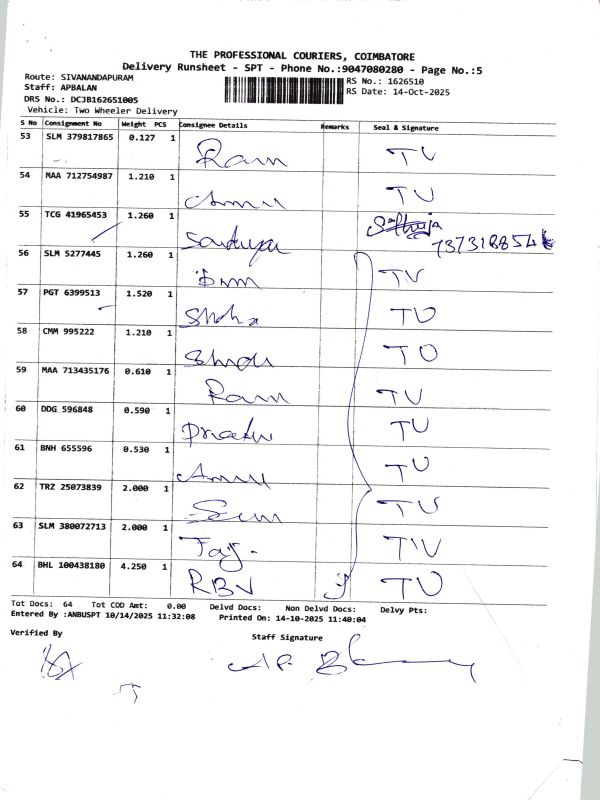 THE PROFESSIONAL COURIERS, COIMBATORE
Delivery Runsheet - SPT - Phone No.:9047080280 - Page No.:5
Route: SIVANANDAPURAM
RS No.: 1626510
Staff: APBALAN
RS Date: 14-Oct-2025
DRS No.: DCJB162651005
Vehicle: Two Wheeler Delivery
S No Consignment No Weight PCS Consignee Details Remarks Seal & Signature
53 SLM 379817865 0.127 1
Ram TV
54 MAA 712754987 1.210 1
Ammu TV
55 TCG 41965453 1.260 1
56 SLM 5277445 1.260 1
TV
57 PGT 6399513 1.520 1
TV
58 CMM 995222 1.210 1
TV
59 MAA 713435176 0.610 1
Ram TV
60 DDG 596848 0.590 1
TV
61 BNH 655596 0.530 1
Ammu TV
62 TRZ 25073839 2.000 1
TV
63 SLM 380072713 2.000 1
TV
64 BHL 100438180 4.250 1
RBV TV
Tot Docs: 64 Tot COD Amt: 0.00 Delvd Docs: Non Delvd Docs: Delvy Pts:
Entered By :ANBUSPT 10/14/2025 11:32:08 Printed On: 14-10-2025 11:40:04
Verified By
Staff Signature